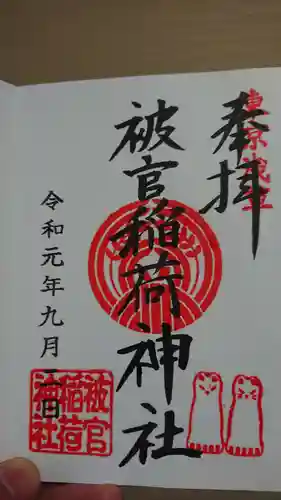 奉拝
東京浅草
被官稲荷神社
令和元年九月二日
被官
稲荷
神社